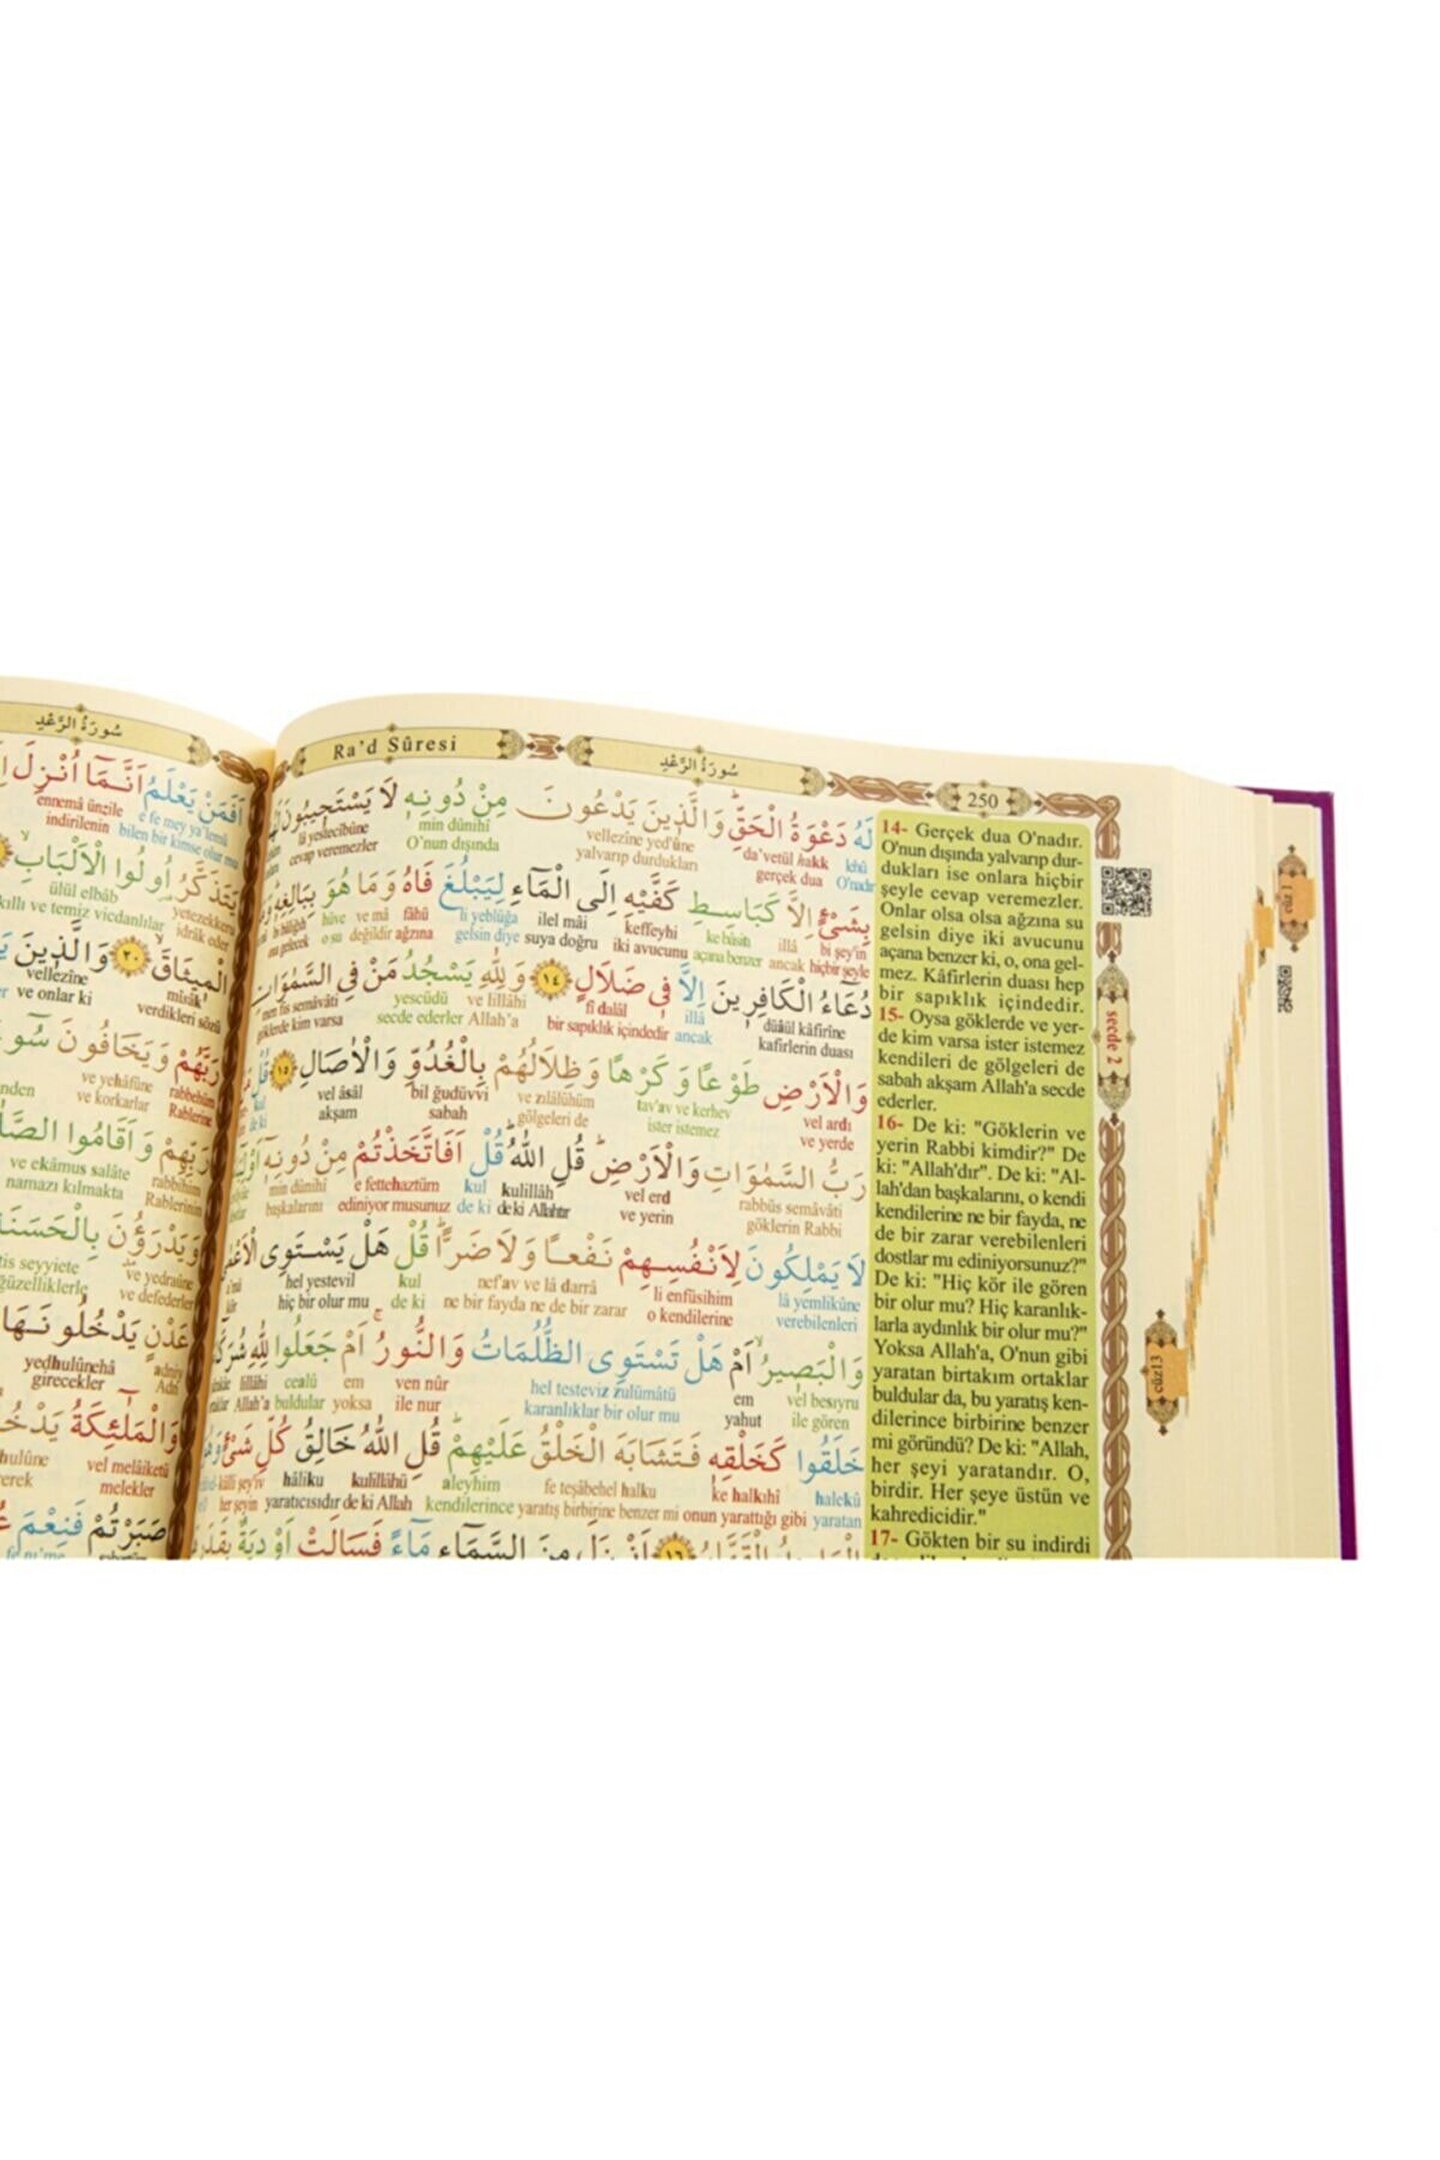 سُورَةُ الرَّعْدِ
Ra'd Sûresi
سُورَةُ الرَّعْدِ
250
لَهُ دَعْوَةُ الْحَقِّ وَالَّذِينَ يَدْعُونَ مِنْ دُونِهِ لَا يَسْتَجِيبُونَ
lehü da'vetül hakk vellezîne yed'ûne min dûnihî lâ yestecîbûne
O'nadır gerçek dua yalvarıp durdukları O'nun dışında cevap veremezler
بِشَيْءٍ اِلَّا كَبَاسِطِ كَفَّيْهِ اِلَى الْمَٓاءِ لِيَبْلُغَ فَاهُ وَمَا هُوَ بِبَالِغِهِ
bi şey'in illâ ke bâsitı keffeyhi ilel mâi li yeblüğa fâhü ve mâ hüve
hiçbir şeyle ancak açana benzer iki avucunu suya doğru gelsin diye ağzına değildir o su
دُعَٓاءُ الْكَافِرِينَ اِلَّا فِي ضَلَالٍ ١٤ وَلِلّٰهِ يَسْجُدُ مَنْ فِي السَّمٰوَاتِ
düâül kâfirîne illâ fî dalâl ve lillâhi yescüdü men fis semâvâti
kafirlerin duası ancak bir sapıklık içindedir Allah'a secde ederler göklerde kim varsa
وَالْاَرْضِ طَوْعًا وَكَرْهًا وَظِلَالُهُمْ بِالْغُدُوِّ وَالْاٰصَالِ ١٥ قُلْ
vel ardı tav'av ve kerhev ve zılâlühüm bil ğudüvvi vel âsâl kul
ve yerde ister istemez gölgeleri de sabah akşam de ki
رَبُّ السَّمٰوَاتِ وَالْاَرْضِ قُلِ اللّٰهُ قُلْ اَفَاتَّخَذْتُمْ مِنْ دُونِهٓ
rabbüs semâvâti vel erd kulillâh kul e fettehaztüm min dûnihî
göklerin Rabbi ve yerin de ki Allahtır de ki ediniyor musunuz başkalarını
لَا يَمْلِكُونَ لِاَنْفُسِهِمْ نَفْعًا وَلَا ضَرًّا قُلْ هَلْ يَسْتَوِي
lâ yemlikûne li enfüsihim nef'av ve lâ darrâ kul hel yestevil
verebilenleri o kendilerine ne bir fayda ne de bir zarar de ki hiç bir olur mu
وَالْبَصِيرُ اَمْ هَلْ تَسْتَوِي الظُّلُمَاتُ وَالنُّورُ اَمْ جَعَلُوا لِلّٰهِ
vel besıyru em hel testeviz zulümâtü ven nûr em cealû lillâhi
ile gören yahut karanlıklar bir olur mu ile nur yoksa buldular Allah'a
خَلَقُوا كَخَلْقِهِ فَتَشَابَهَ الْخَلْقُ عَلَيْهِمْ قُلِ اللّٰهُ خَالِقُ كُلِّ شَيْءٍ
halekû ke halkıhî fe teşâbehel halku aleyhim kulillâhü hâliku külli şey'iv
yaratan onun yarattığı gibi yaratış birbirine benzer mi kendilerince de ki Allah yaratıcısıdır her şeyin
١٦ اَنْزَلَ مِنَ السَّمَٓاءِ مَٓاءً فَسَالَتْ اَوْدِيَةٌ
14- Gerçek dua O'nadır.
O'nun dışında yalvarıp dur-
dukları ise onlara hiçbir
şeyle cevap veremezler.
Onlar olsa olsa ağzına su
gelsin diye iki avucunu
açana benzer ki, o, ona gel-
mez. Kâfirlerin duası hep
bir sapıklık içindedir.
15- Oysa göklerde ve yer-
de kim varsa ister istemez
kendileri de gölgeleri de
sabah akşam Allah'a secde
ederler.
16- De ki: "Göklerin ve
yerin Rabbi kimdir?" De
ki: "Allah'dır". De ki: "Al-
lah'dan başkalarını, o kendi
kendilerine ne bir fayda, ne
de bir zarar verebilenleri
dostlar mı ediniyorsunuz?"
De ki: "Hiç kör ile gören
bir olur mu? Hiç karanlık-
larla aydınlık bir olur mu?"
Yoksa Allah'a, O'nun gibi
yaratan birtakım ortaklar
buldular da, bu yaratış ken-
dilerince birbirine benzer
mi göründü? De ki: "Allah,
her şeyi yaratandır. O,
birdir. Her şeye üstün ve
kahredicidir."
17- Gökten bir su indirdi
secde 2
cüz13
cüz1
اَفَمَنْ يَعْلَمُ اَنَّمَٓا اُنْزِلَ
e fe mey ya'lemü ennemâ ünzile
bilen bir kimse olur mu indirilenin
يَتَذَكَّرُ اُولُوا الْاَلْبَابِ
yetezekkeru ülül elbâb
idrâk eder ve temiz vicdanlılar
الْمِيثَاقَ ٢٠ وَالَّذِينَ
mîsâk vellezîne
verdikleri sözü ve onlar ki
رَبَّهُمْ وَيَخَافُونَ سُٓوءَ
rabbehüm ve yehâfûne
Rablerine ve korkarlar
رَبِّهِمْ وَاَقَامُوا
rabbihim ve ekâmus salâte
Rablerinin namazı kılmakta
وَيَدْرَؤُنَ بِالْحَسَنَةِ
ve yedraûne seyyiete
ve defederler güzelliklerle
عَدْنٍ يَدْخُلُونَهَا
adniy yedhulûnehâ
Adn girecekler
وَالْمَلٰٓئِكَةُ
vel melâiketü
melekler
صَبَرْتُمْ فَنِعْمَ